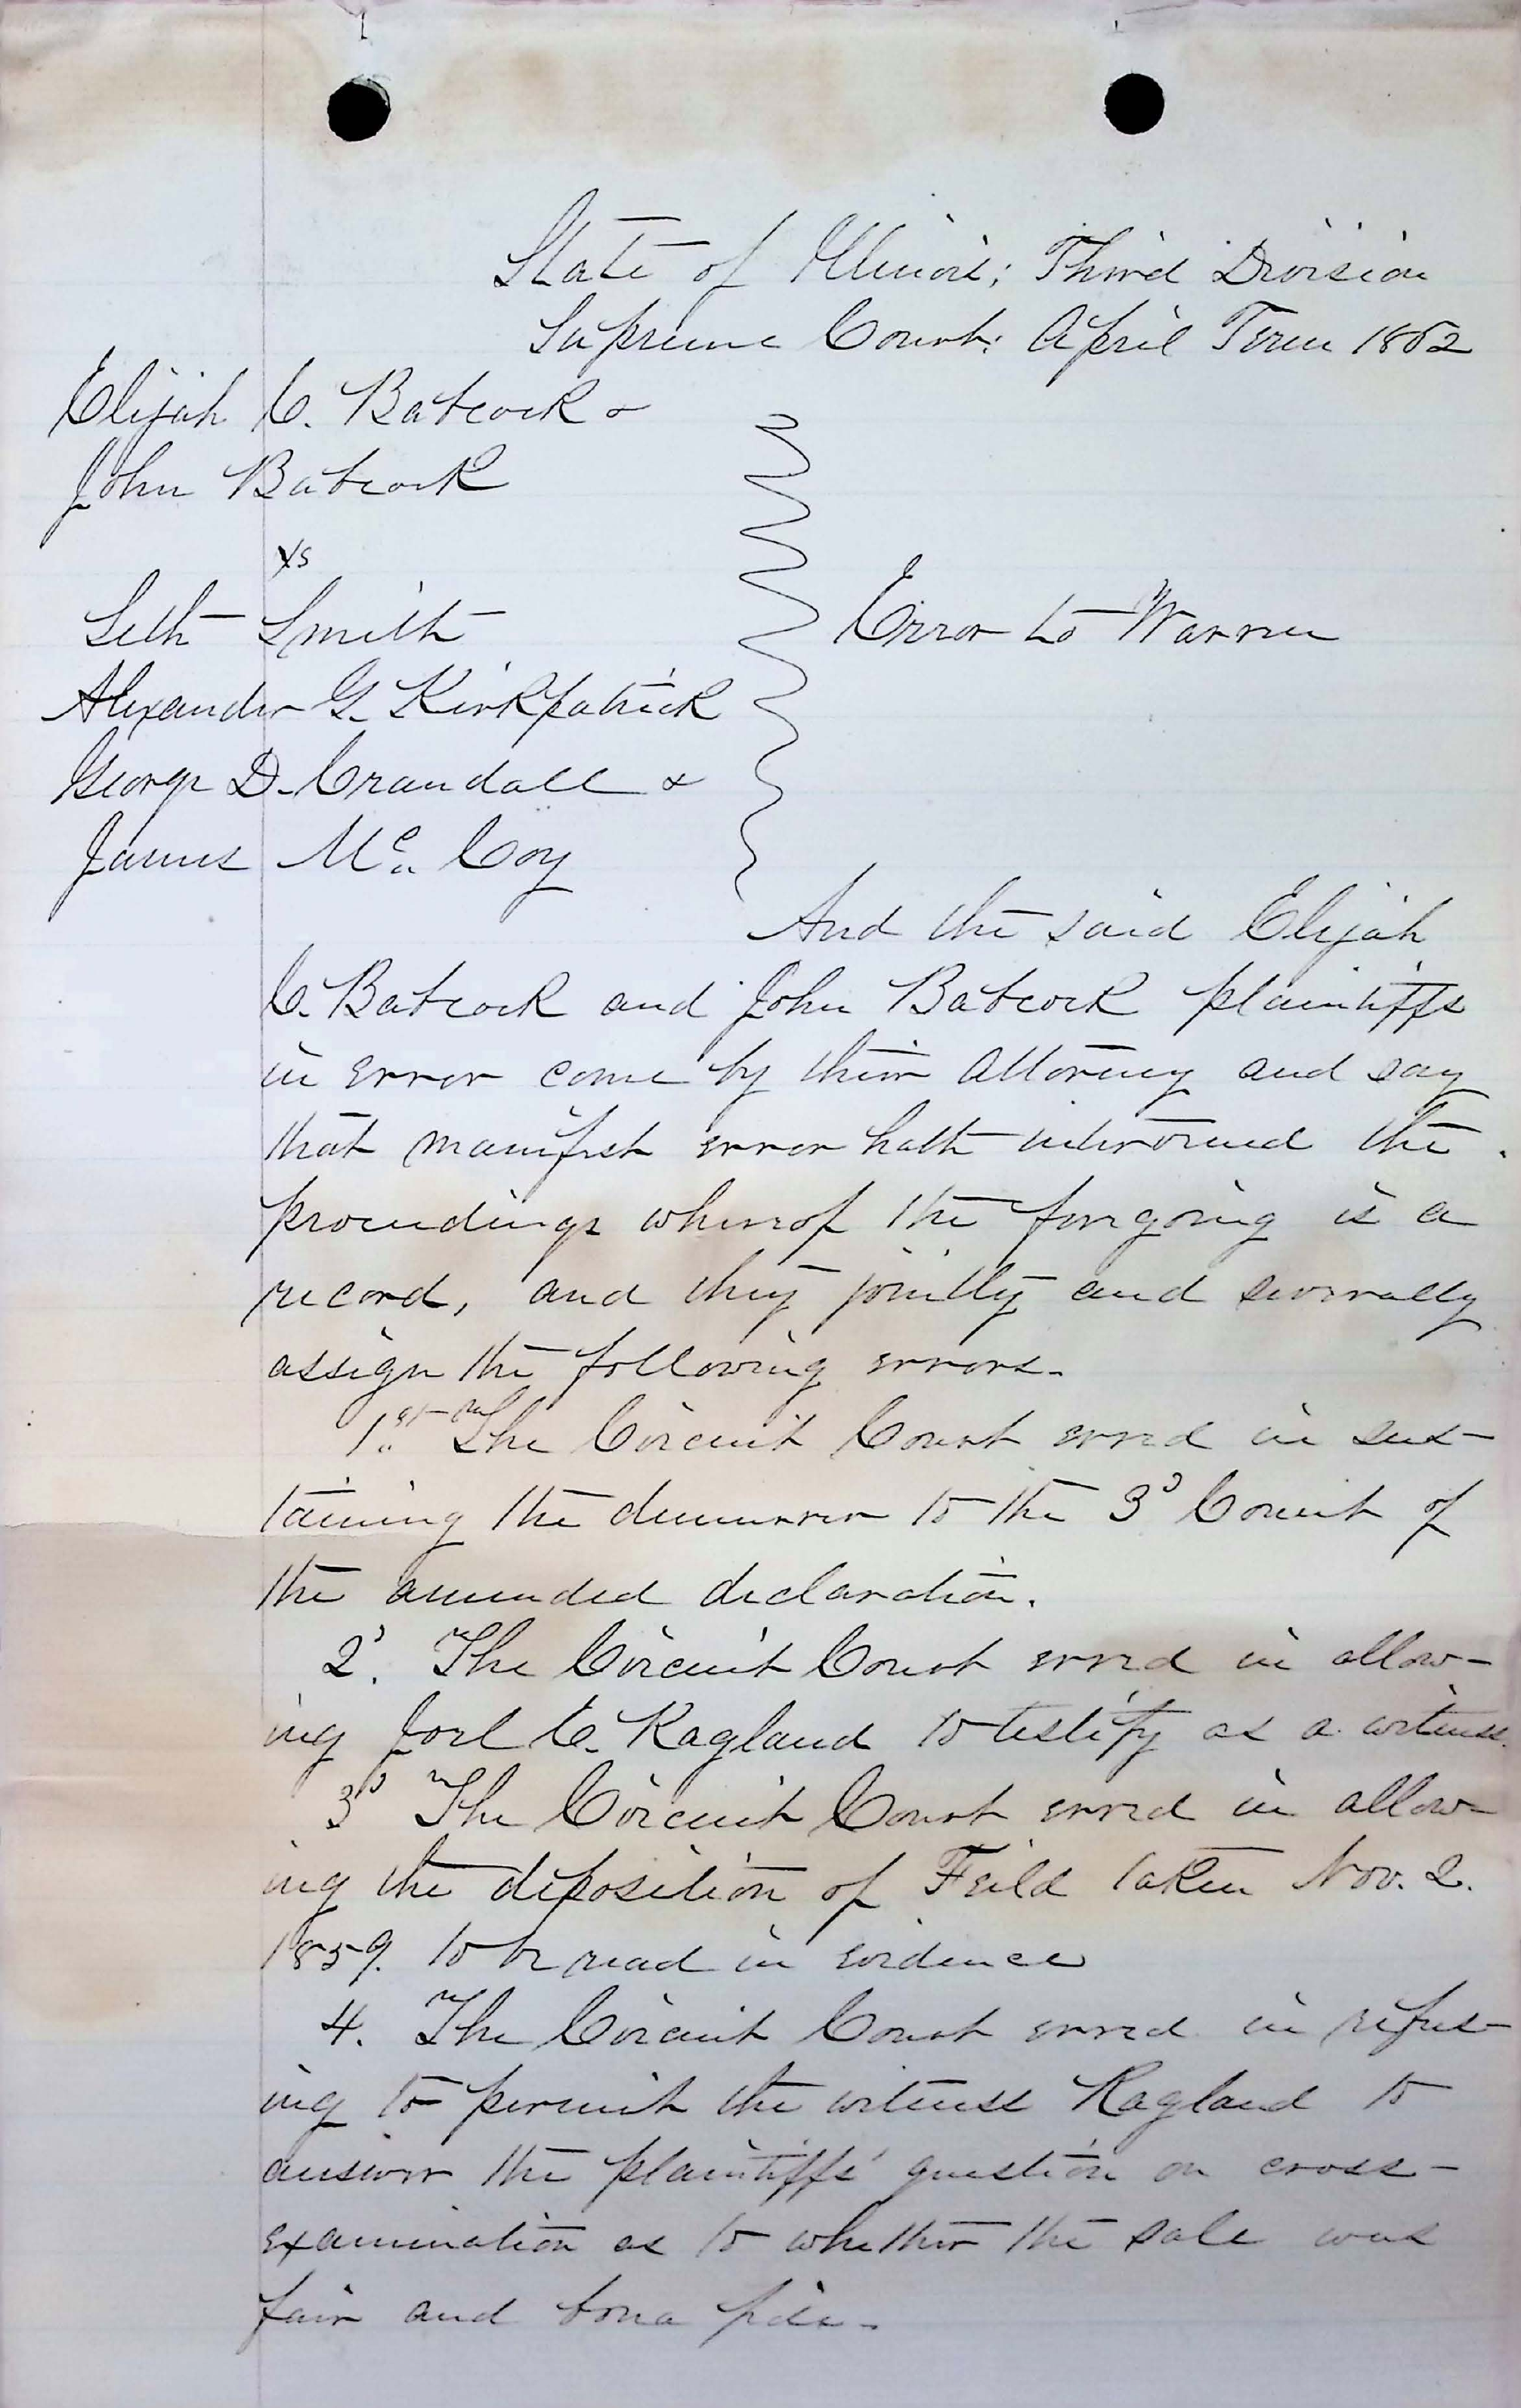 State of Illinois; Third Division
Supreme Court: April Term 1862
Elijah C. Babcock &
John Babcock
vs
Seth Smith
Alexander G. Kirkpatrick
George D. Crandall &
James Mc. Coy
Error to Warren
And the said Elijah
C. Babcock and John Babcock plaintiffs
in error come by their attorney and say
that manifest error hath intervened the
proceedings whereof the foregoing is a
record, and they jointly and severally
assign the following errors.
1st The Circuit Court erred in sus-
taining the demurrer to the 3d Count of
the amended declaration.
2d. The Circuit Court erred in allow-
ing Joel C. Ragland to testify as a witness.
3d The Circuit Court erred in allow-
ing the deposition of Feild taken Nov. 2.
1859. to be read in evidence
4. The Circuit Court erred in refus-
ing to permit the witness Ragland to
answer the plaintiffs' question on cross-
examination as to whether the sale was
fair and bona fide.